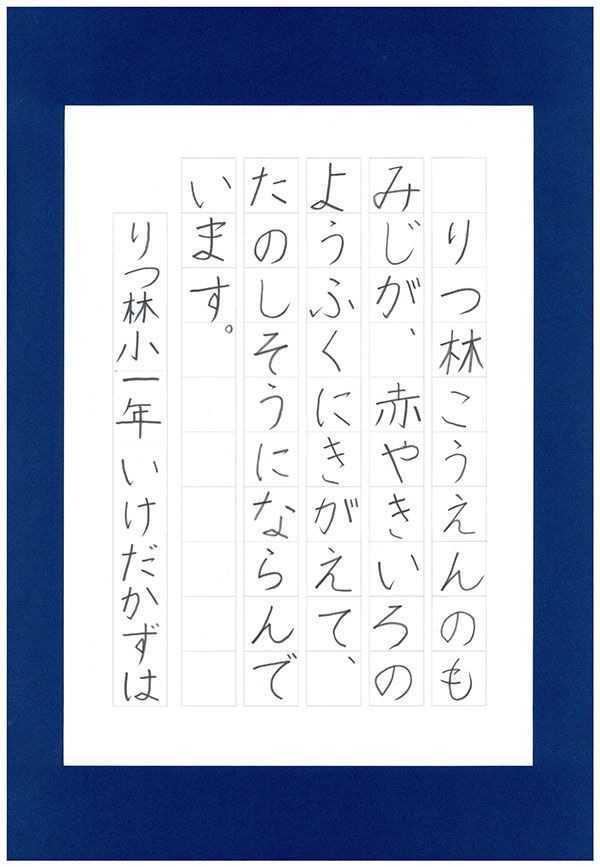 りつ林こうえんのも
みじが、赤やきいろの
ようふくにきがえて、
たのしそうにならんで
います。
りつ林小一年いけだかずは